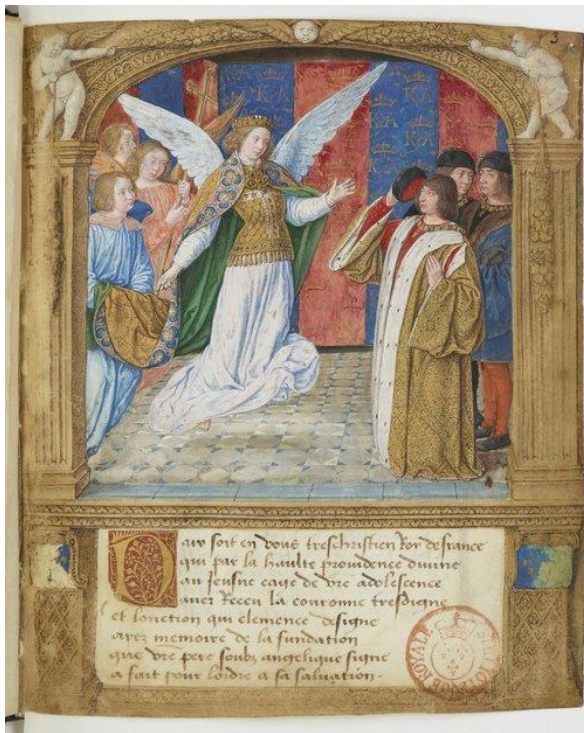 3
KA
Paix soit en vous treschristien Roy de france
qui par la haulte providence divine
au jeusne eage de vre adolescence
avez Receu la couronne tresdigne
et lonction qui clemence designe
ayez memoire de la fundation
que vre pere soubz angelique signe
a fait pour lordre a sa saluation.
ROYALE